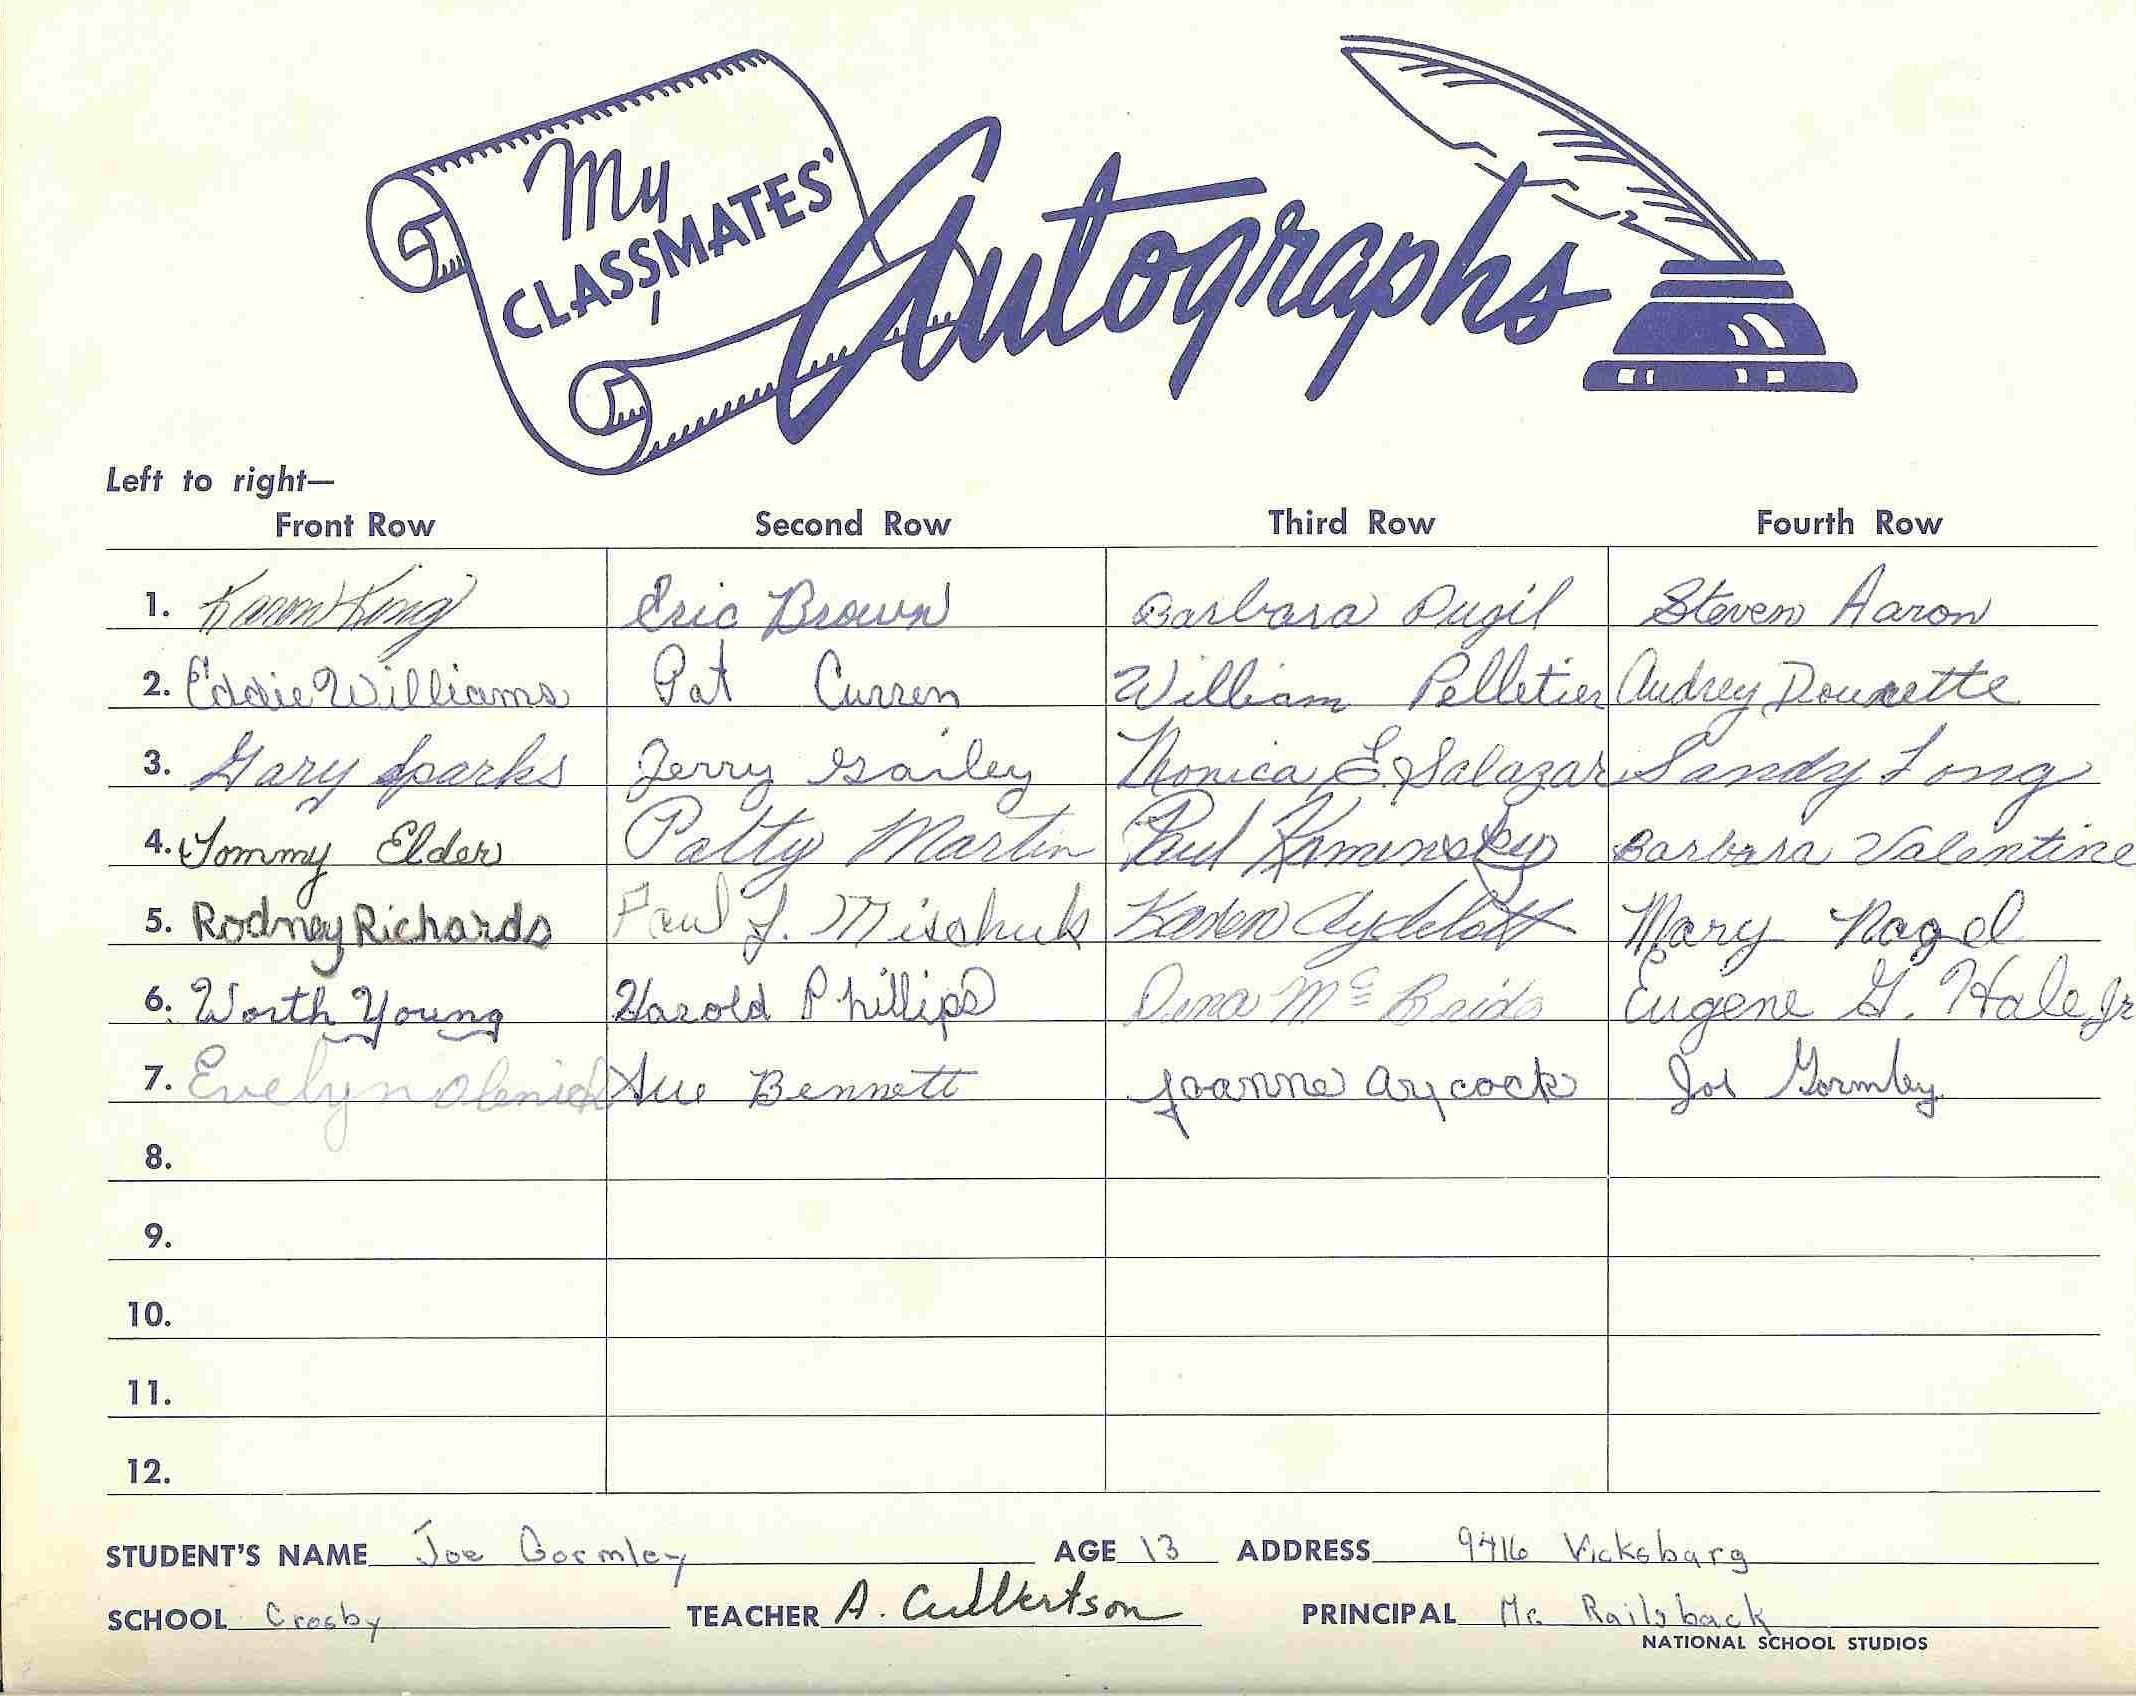 My
CLASSMATES'
Autographs
Left to right—
Front Row Second Row Third Row Fourth Row
1. Karen King Eric Brown Barbara Pugil Steven Aaron
2. Eddie Williams Pat Curren William Pelletier Audrey
3. Gary Sparks Jerry Gailey Monica E. Salazar Sandy Long
4. Tommy Elder Patty Martin Paul Kaminsky Barbara Valentine
5. Rodney Richards Paul J. Mischuk Karen Aydelott Mary Nagel
6. Worth Young Harold Phillips Dena McBride Eugene G. Hale, Jr
7. Evelyn Sue Bennett Joanne Aycock Joe Gormley
8.
9.
10.
11.
12.
STUDENT'S NAME Joe Gormley AGE 13 ADDRESS 9716 Vicksburg
SCHOOL Crosby TEACHER A. Culbertson PRINCIPAL Mr. Railsback
NATIONAL SCHOOL STUDIOS